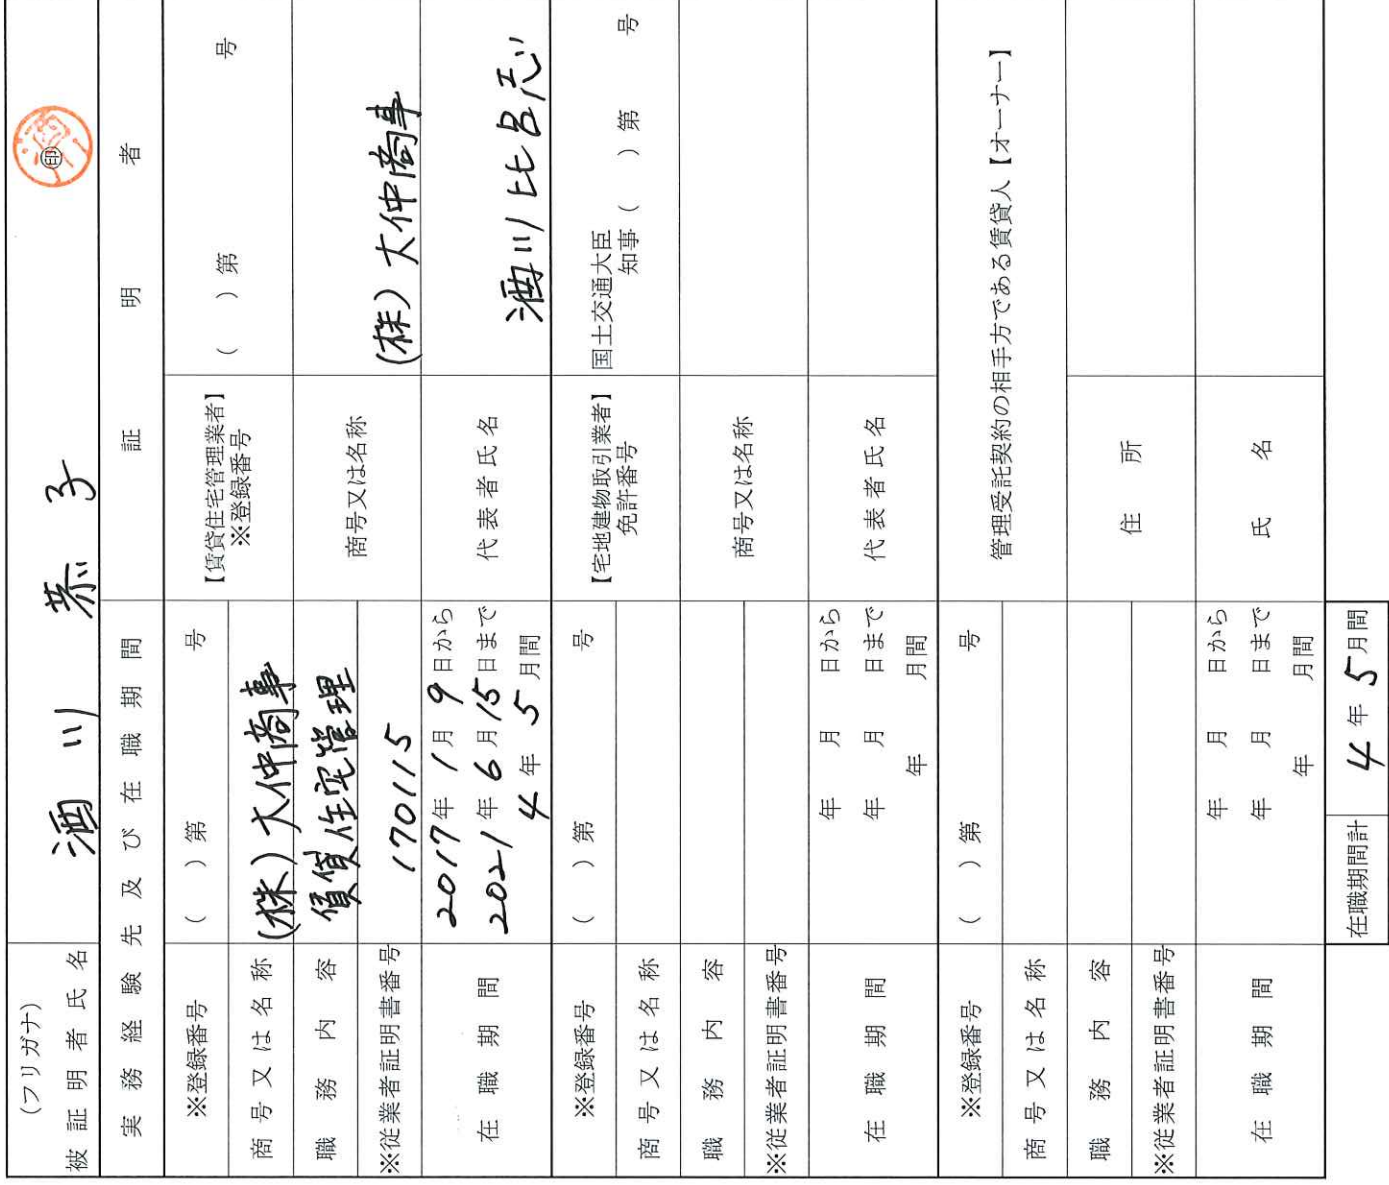 (フリガナ)
被証明者氏名 酒川 恭子 ㊞
実務経験先及び在職期間 証明者
※登録番号 ( )第 号 【賃貸住宅管理業者】 ※登録番号 ( )第 号
商号又は名称 (株)大仲商事 商号又は名称 (株)大仲商事
職務内容 賃貸住宅管理
※従業者証明書番号 170115
在職期間 2017年1月9日から 代表者氏名 酒川比呂志
2021年6月15日まで
4年5月間
※登録番号 ( )第 号 【宅地建物取引業者】 免許番号 国土交通大臣 知事( )第 号
商号又は名称 商号又は名称
職務内容
※従業者証明書番号
在職期間 年 月 日から 代表者氏名
年 月 日まで
年 月間
※登録番号 ( )第 号 管理受託契約の相手方である賃貸人【オーナー】
商号又は名称
職務内容 住所
※従業者証明書番号
在職期間 年 月 日から 氏名
年 月 日まで
年 月間
在職期間計 4年5月間